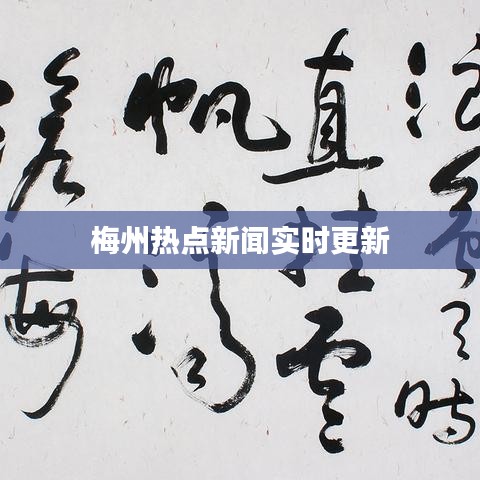 浪会有时
直挂雲
帆济
沧海
梅州热点新闻实时更新